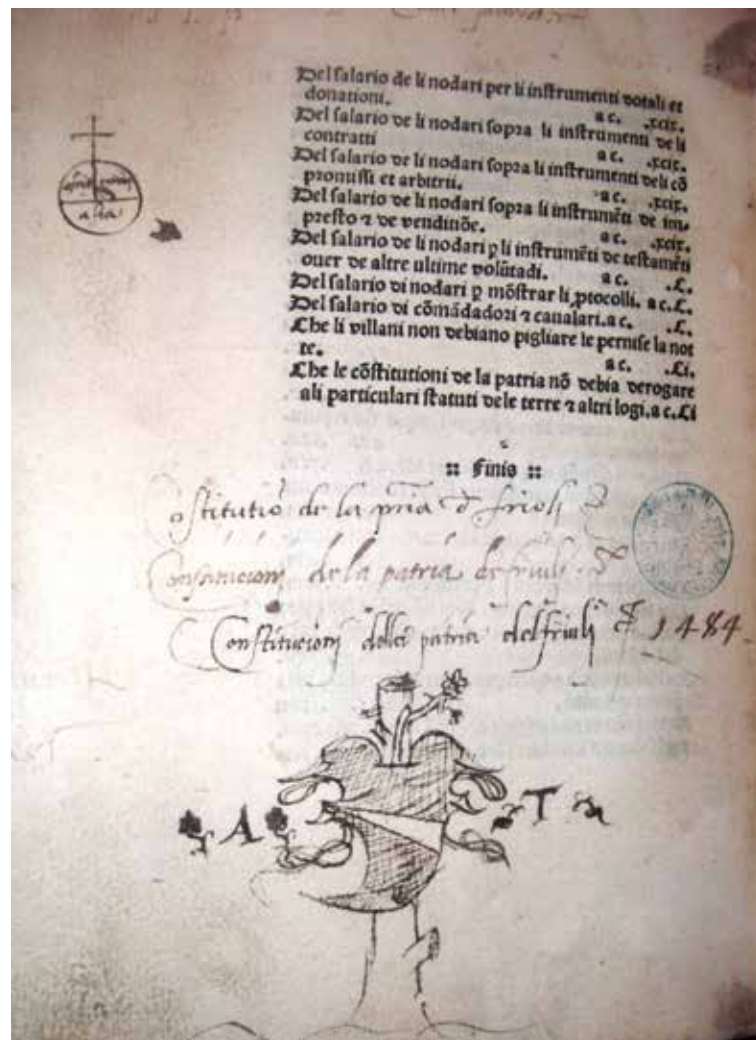 Del salario de li nodari per li instrumenti dotali et
donationi. a c. .xcix.
Del salario de li nodari sopra li instrumenti de li
contratti a c. .xcix.
Del salario de li nodari sopra li instrumenti deli cō
promissi et arbitrii. a c. .xcix.
Del salario de li nodari sopra li instrumēti de im-
presto ⁊ de venditiōe. a c. .xcix.
Del salario de li nodari ꝑ li instrumēti de testamēti
ouer de altre ultime volūtadi. a c. .C.
Del salario di nodari ꝑ mōstrar li ꝓtocolli. a c. .C.
Del salario di cōmādadori ⁊ caualari. a c. .C.
Che li villani non debiano pigliare le pernise la not
te. a c. .Ci.
Che le cōstitutioni de la patria nō debia derogare
ali particulari statuti dele terre ⁊ altri logi. a c. Ci
:: Finis ::
Constitutiō de la pria d frioli
Constitucioni de la patria de friuli
Constitucioni della patria del friuli 1484
A T